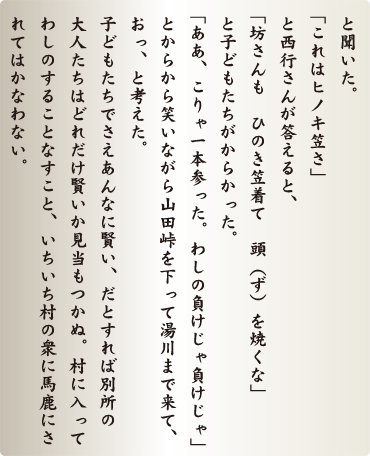 と聞いた。
「これはヒノキ笠さ」
と西行さんが答えると、
「坊さんも　ひのき笠着て　頭（ず）を焼くな」
と子どもたちがからかった。
「ああ、こりゃ一本参った。わしの負けじゃ負けじゃ」
とからから笑いながら山田峠を下って湯川まで来て、
おっ、と考えた。
子どもたちでさえあんなに賢い、だとすれば別所の
大人たちはどれだけ賢いか見当もつかぬ。村に入って
わしのすることなすこと、いちいち村の衆に馬鹿にさ
れてはかなわない。